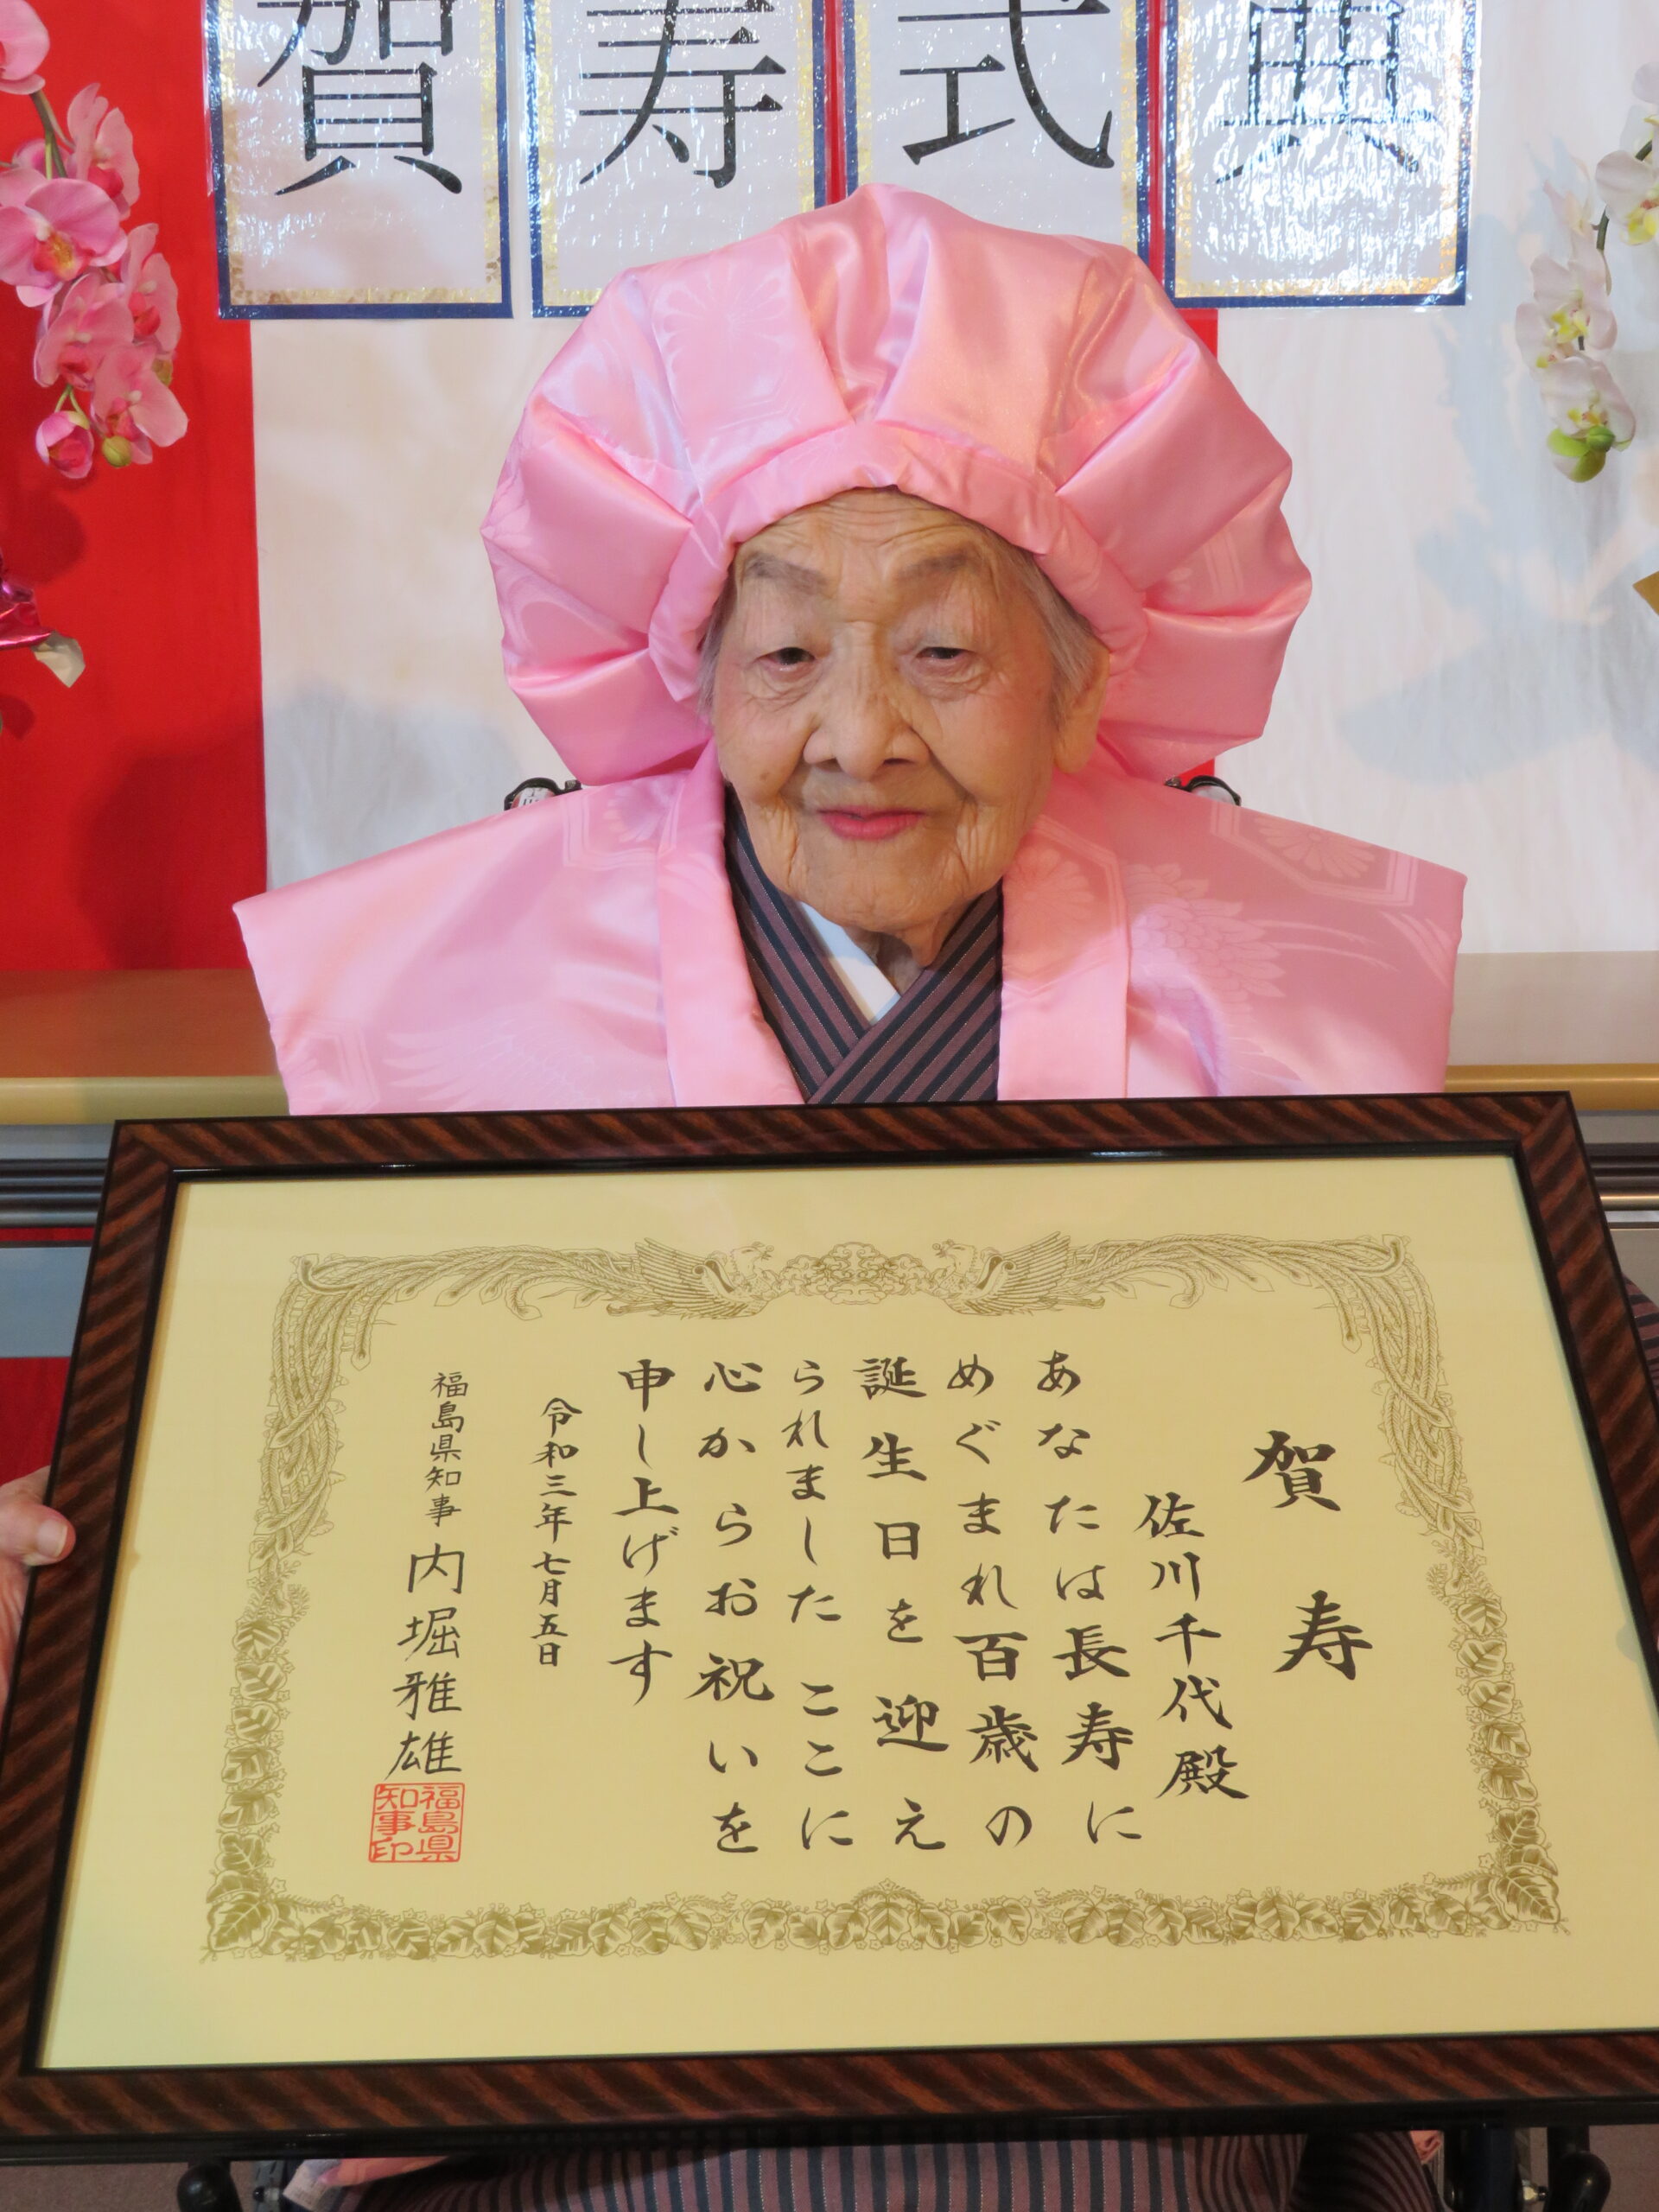 賀寿式典
賀寿
佐川千代殿
あなたは長寿に
めぐまれ百歳の
誕生日を迎え
られました ここに
心からお祝いを
申し上げます
令和三年七月五日
福島県知事 内堀雅雄
福島県
知事印